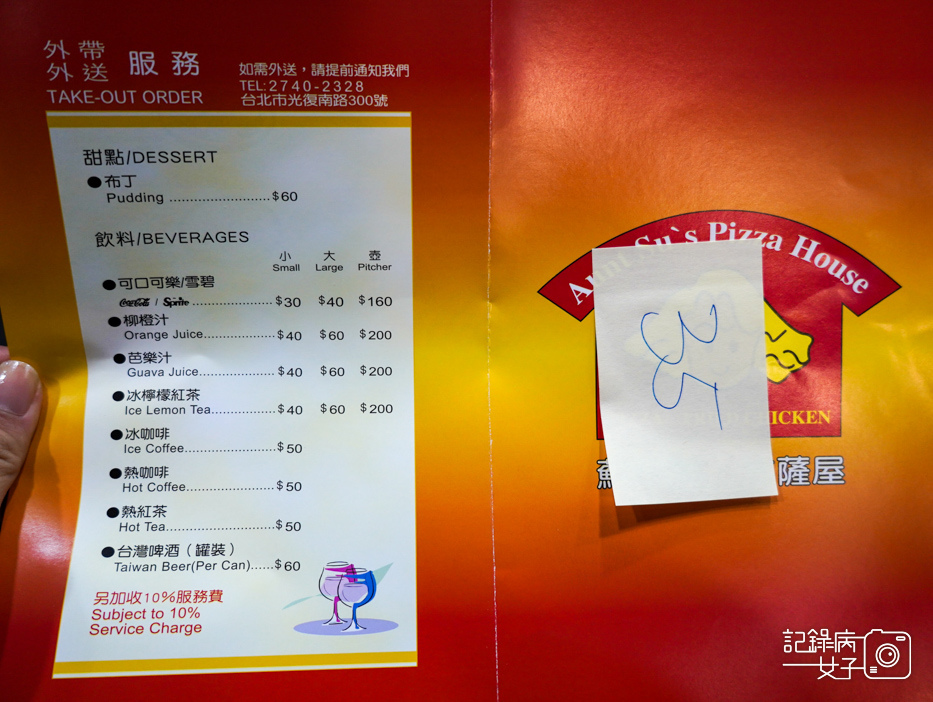 外帶
外送 服務
TAKE-OUT ORDER
如需外送，請提前通知我們
TEL:2740-2328
台北市光復南路300號
甜點/DESSERT
●布丁
Pudding ..........................$60
飲料/BEVERAGES
小 大 壺
Small Large Pitcher
●可口可樂/雪碧
Coca-Cola / Sprite .....................$30 $40 $160
●柳橙汁
Orange Juice..................$40 $60 $200
●芭樂汁
Guava Juice...................$40 $60 $200
●冰檸檬紅茶
Ice Lemon Tea................$40 $60 $200
●冰咖啡
Ice Coffee.......................$50
●熱咖啡
Hot Coffee......................$50
●熱紅茶
Hot Tea...........................$50
●台灣啤酒（罐裝）
Taiwan Beer(Per Can)......$60
另加收10%服務費
Subject to 10%
Service Charge
Su`s Pizza House
薩屋
記錄病
女子